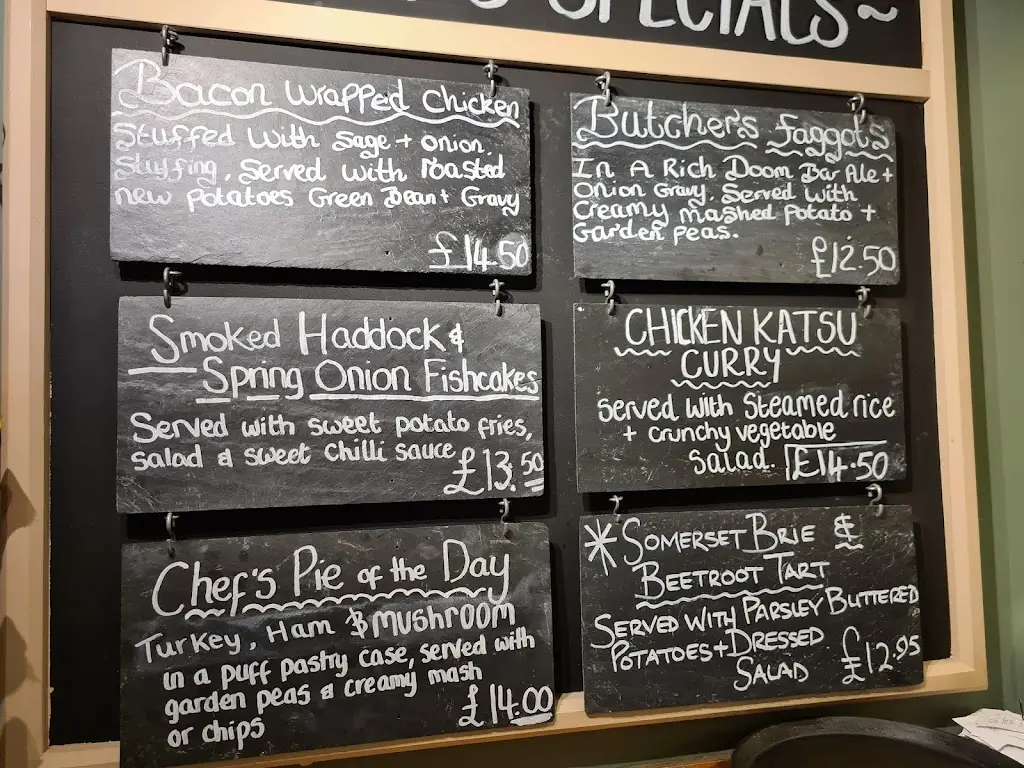 SPECIALS~
Bacon Wrapped Chicken
Stuffed With Sage + Onion
Stuffing, Served With roasted
new potatoes Green Bean + Gravy
£14.50
Butchers Faggots
In A Rich Doom Bar Ale +
Onion Gravy. Served With
Creamy Mashed Potato +
Garden Peas.
£12.50
Smoked Haddock &
Spring Onion Fishcakes
Served with sweet potato fries,
salad & sweet chilli sauce
£13.50
CHICKEN KATSU
CURRY
Served With Steamed rice
+ crunchy vegetable
Salad. £14.50
Chef's Pie of the Day
Turkey, Ham & MUSHROOM
in a puff pastry case, served with
garden peas & creamy mash
or chips
£14.00
* SOMERSET BRIE &
BEETROOT TART
SERVED WITH PARSLEY BUTTERED
POTATOES + DRESSED
SALAD
£12.95